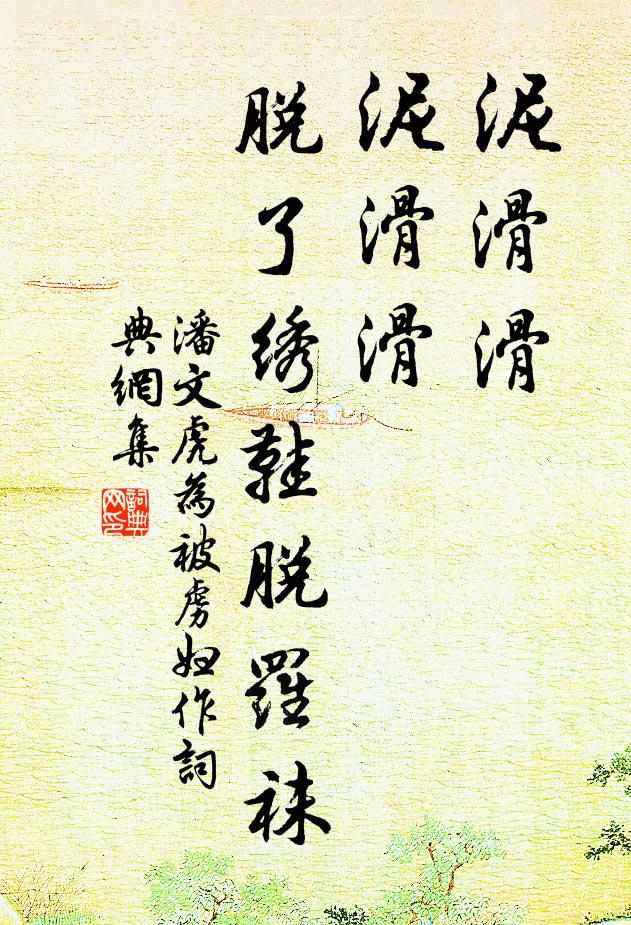 泥滑滑
泥滑滑
脱了绣鞋脱羅袜
潘文虎為被虏妇作詞
典網集
詞典
网印